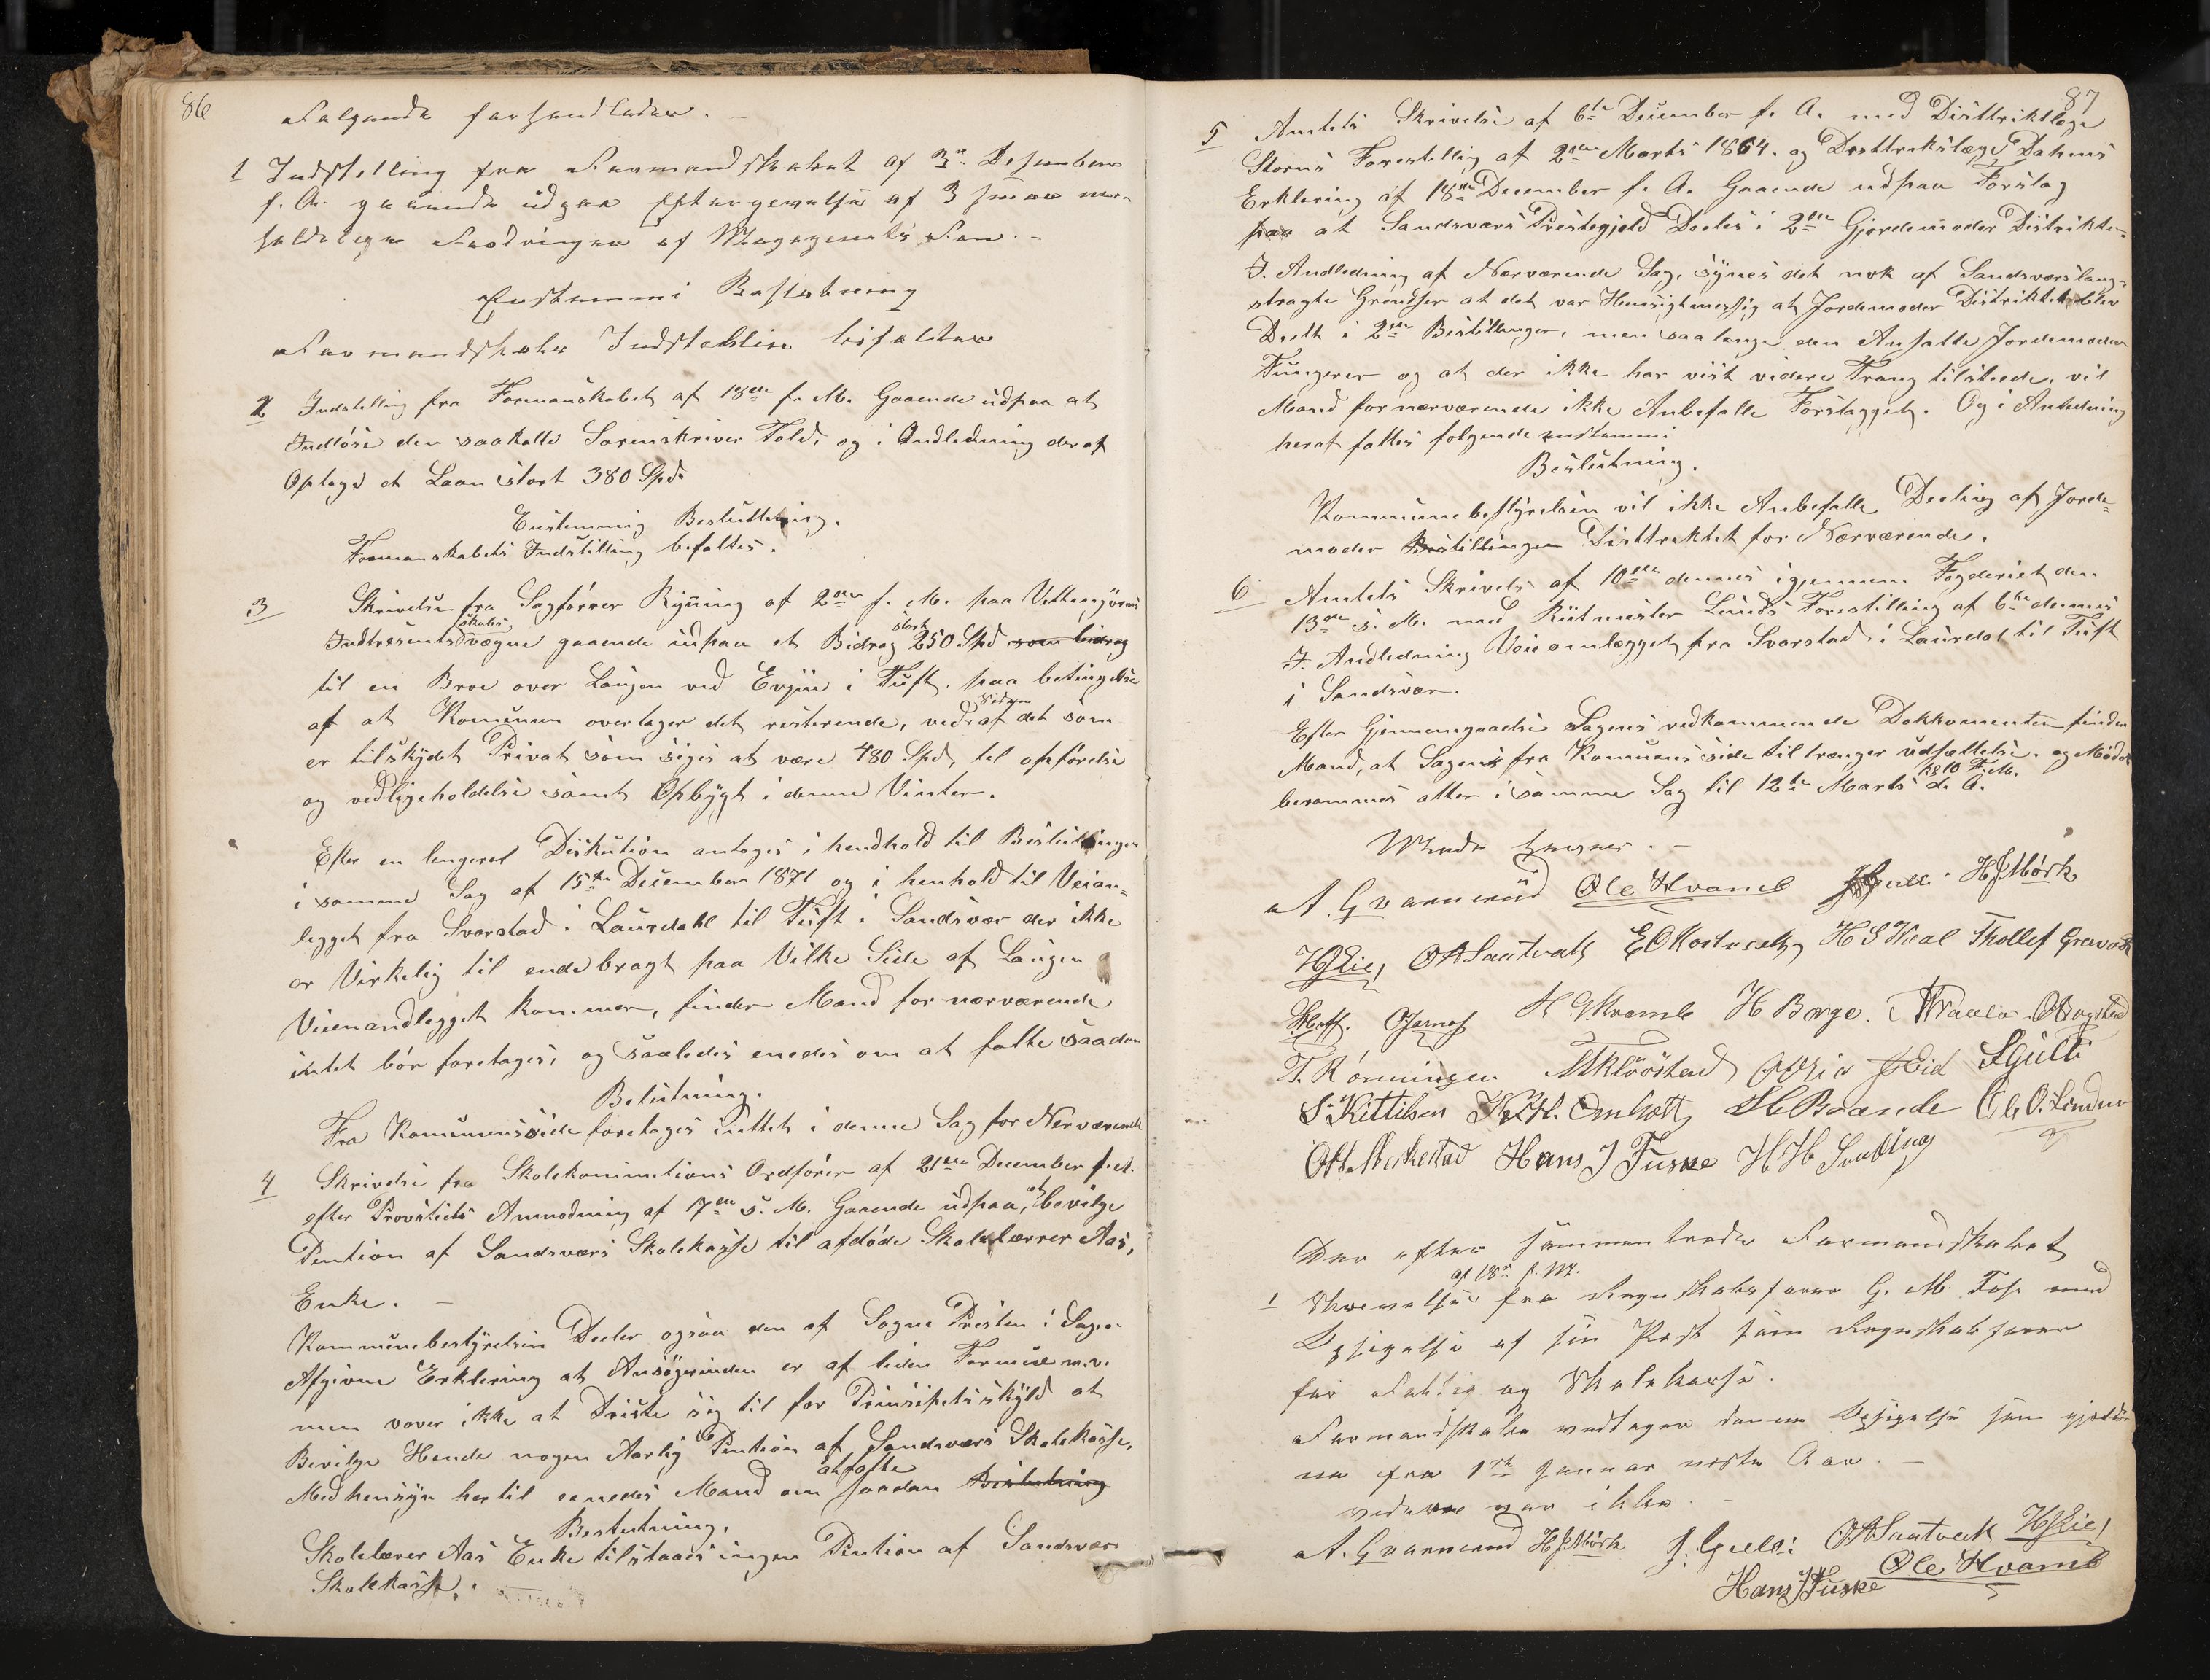 86
Følgende forhandledes. –
1 Indstilling fra Formandskabet af 3die Desember
f. A. gaaende udpaa Eftergivelse af 3 smaa
Fordringer af Magazinets
Enstemmi Beslutning
Formandskabets Indstelling bifaltes
2 Indstilling fra Formanskabet af 18de f. M. Gaaende udpaa at
Indløse den saakalte Sorenskriver Told, og i Andledning deraf
Optage et Laan stort 380 Spd.
Enstemmig Beslutteing.
Formanskabets Indstilling befaltes.
3 Skrivelse fra Sagførrer Rynning af 2den f. M. paa
Indtresentskabs vægne gaaende udpaa et Bidrag stort 250 Spd som bidrag
til en Broe over Laugen ved Evju i Tuft. paa betingelse
af at Komunen overtager det resterende, ved siden af det som
er tilskydt Privat som siges at være 480 Spd, til opførelse
og vedligeholdelse samt Opbygt i denne Vinter.
Efter en lengere Diskution antoges i hendhold til Beslutningen
i samme Sag af 15de December 1871 og i henhold til Veian=
legget fra Svarstad i Laurdahl til Tuft i Sandsvær der ikke
er Virkelig til endebragt paa Vilke Side af Laugen
Vieenandlegget kommer, finder Mand for nærværende
intet bør foretages, og saaledes enedes om at fatte saadan
Belutning.
Fra Komunensside foretages inttet i denne Sag for Nerværende
4 Skrivelse fra Skolekomitions Ordfører af 21de December f. A.
efter Provstiets Anmodning af 17de s. M. Gaaende udpaa, at bevilge
Pention af Sandsværs Skolekasse til afdøde Skolelærrer Aas,
Enke. –
Kommunebestyrelsen Deeler ogsaa den af Sogne Presten i Sagen
Afgivne Erklering at Ansøgerinden er af liden Formue m.v.
men vover ikke at Driste sig til for Prinsipets skyld at
Bevilge Hende nogen Aarlig Pention af Sandsværs Skolekasse,
Med hensyn hertil eenedes Mand om at fatte saadan Beslutning
Beslutning,
Skolelærer Aas Enke tilstaaes ingen Pention af Sandsvær
Skolekasse.
87
5 Amtets Skrivelse af 6te December f. A. med Disttriktlæge
Storns Forestilling af 2den Marts 1864. og Distrikslæge Dahms
Erklering af 18de December f. A. Gaaende udpaa Forslag
paa at Sandsværs Prestegjeld Deeles i 2de Gjordemoder Distrikter.
I. Andledning af Nærværende Sag, synes det nok af Sandsværs lang=
stragte Grendser at det var Hensigtmessig at Jordemoder Distriktet blev
Deelt i 2de Bestillinger, men saa lenge den Ansatte Jordemoder
Fungerer og at der ikke har vist videre Trang tilstede, vil
Mand for nærværende ikke Anbefalle Forslagget. Og i Anledning
heraf fattes følgende enstemmi
Beslutning.
Kommunebestyrelsen vil ikke Anbefalle Deeling af Jorde=
moder Bestillingen Disttriktet for Nærværende.
6 Amtets Skrivels af 10de dennes igjennem Fogderiet den
13de s. M. med Ritmester Lunds Forestilling af 6te dennes
I. Andledning Veieomlegget fra Svarstad i Laurdal til Tuft
i Sandsvær.
Efter Gjennemgaaelse Sagens vedkommende Dokkumenter finder
Mand, at Sagens fra Komunens side til trænger udsættelse. og Mødet
berammes atter i samme Sag til 12te Marts d. A. kl 10 F.M.
Mødet hæves. –
A. Gvarnerud Ole Hvamb JGulli HJMörk
HJLie, OASautvatt HSWeal Thollef Gravaas
H Borge.
T. Rönningen JEid SGulli
S. Kittilsen Omholtt HBrande Ole O. Lindun
Hans J Fuske HH
Der efter sammentrade Formandskabet
1 Skrivelse af 18de f. M. fra Regnskabsfører G. M. Fos. med
Opsigelse af sin Post som Regnskabsfører
for Fattig og Skolekasse.
Formandskabet vedtager denne Opsigelse som gjelden
fra 1ste Januar neste Aar. –
videre var ikke. –
A. Gvarnerud HJMörk J. Gulli OASautvatt HJLie,
Hans J Fuske Ole Hvamb